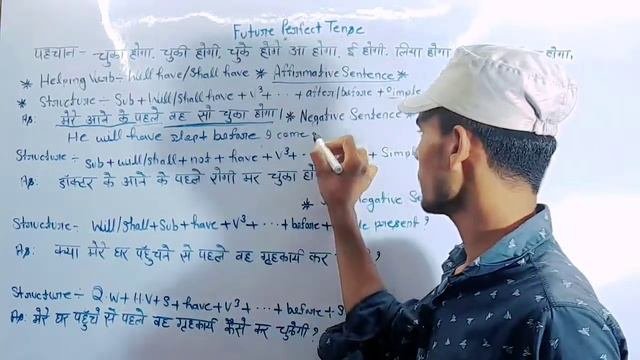 Future Perfect Tense
पहचान - चुका होगा, चुकी होगी, चुके होंगे आ होगा, ई होगी, लिया होगा होगा,
* Helping Verb ÷ Will have/Shall have * Affirmative Sentence *
* Structure ÷ Sub + Will/Shall have + V3 + ... + after/before + Simple
मेरे आने के पहले वह सो चुका होगा। * Negative Sentence *
He will have slept before I come
Structure ÷ Sub + will/shall + not + have + V3 + + Simpl
डॉक्टर के आने के पहले रोगी मर चुका
* Negative Se
Structure ÷ Will/Shall + Sub + have + V3 + ... + before + present ?
क्या मेरे घर पहुँचने से पहले वह गृहकार्य कर ?
Structure ÷ Q.W + H.V + S + have + V3 + ... + before + S
मेरे घर पहुँचे से पहले वह गृहकार्य कैसे कर चुकेगी ?